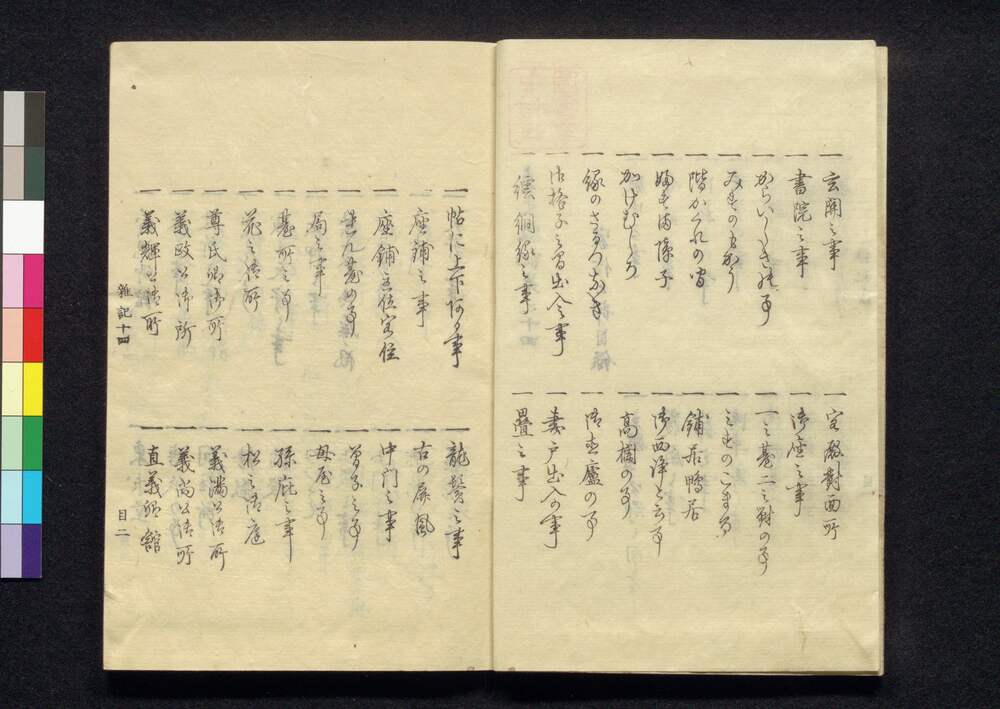 一 玄関之事
一 書院之事
一 からいしきの事
一 みすのもかう
一 階かくれの間
一 婦すま障子
一 かけむしろ
一 縁のさるつなき
一 御格子之間出入之事
一 繧繝縁之事
一 對面所
一 御座之事
一 一之對二之對の事
一 みすのこまる
一 鋪居鴨居
一 御西浄と云事
一 高欄の事
一 の事
一 妻戸出入の事
一 畳之事
一 帖に上下ある事
一 座鋪之事
一 座鋪主位客位
一 の事
一 局之事
一 臺所之事
一 花之御所
一 尊氏卿御所
一 義政公御所
一 義輝公御所
一 龍鬢之事
一 古の屏風
一 中門之事
一 曹子之事
一 母屋之事
一 孫庇之事
一 松之御庭
一 義満公御所
一 義尚公御所
一 直義卿館
雑記十四
目二